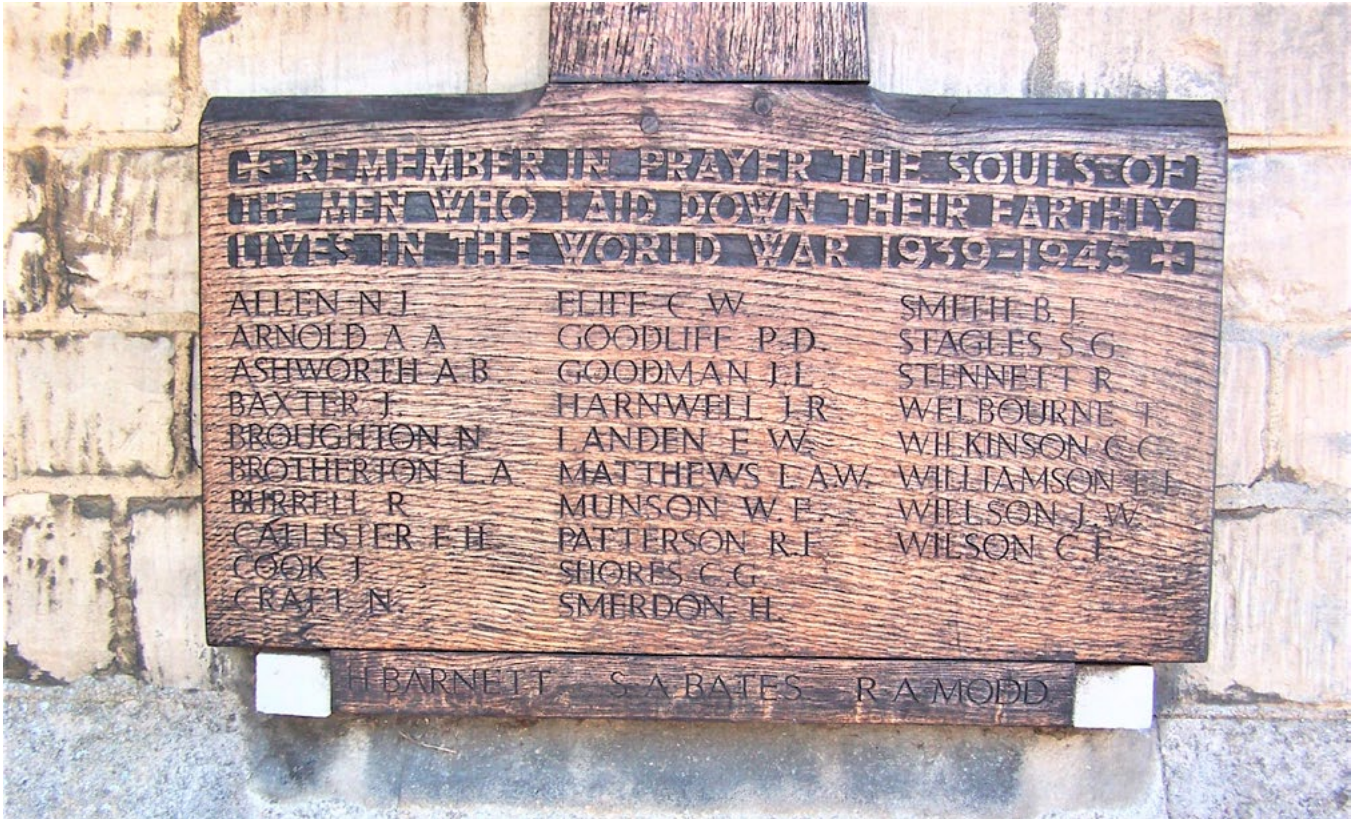 ✠ REMEMBER IN PRAYER THE SOULS OF
THE MEN WHO LAID DOWN THEIR EARTHLY
LIVES IN THE WORLD WAR 1939-1945 ✠
ALLEN N.J.
ARNOLD A A
ASHWORTH A B
BAXTER J.
BROUGHTON N
BROTHERTON L.A
BURRELL R
CALLISTER E.H
COOK J.
CRAFT N.
ELIFF C.W.
GOODLIFF P.D.
GOODMAN J.L.
HARNWELL J.R
LANDEN E W.
MATTHEWS L.A.W.
MUNSON W.E.
PATTERSON R.F
SHORES C.G.
SMERDON H.
SMITH B.J.
STAGLES S.G
STENNETT R
WELBOURNE T.
WILKINSON C.C
WILLIAMSON
WILLSON J.W.
WILSON C.F.
H BARNETT S A BATES R A MODD